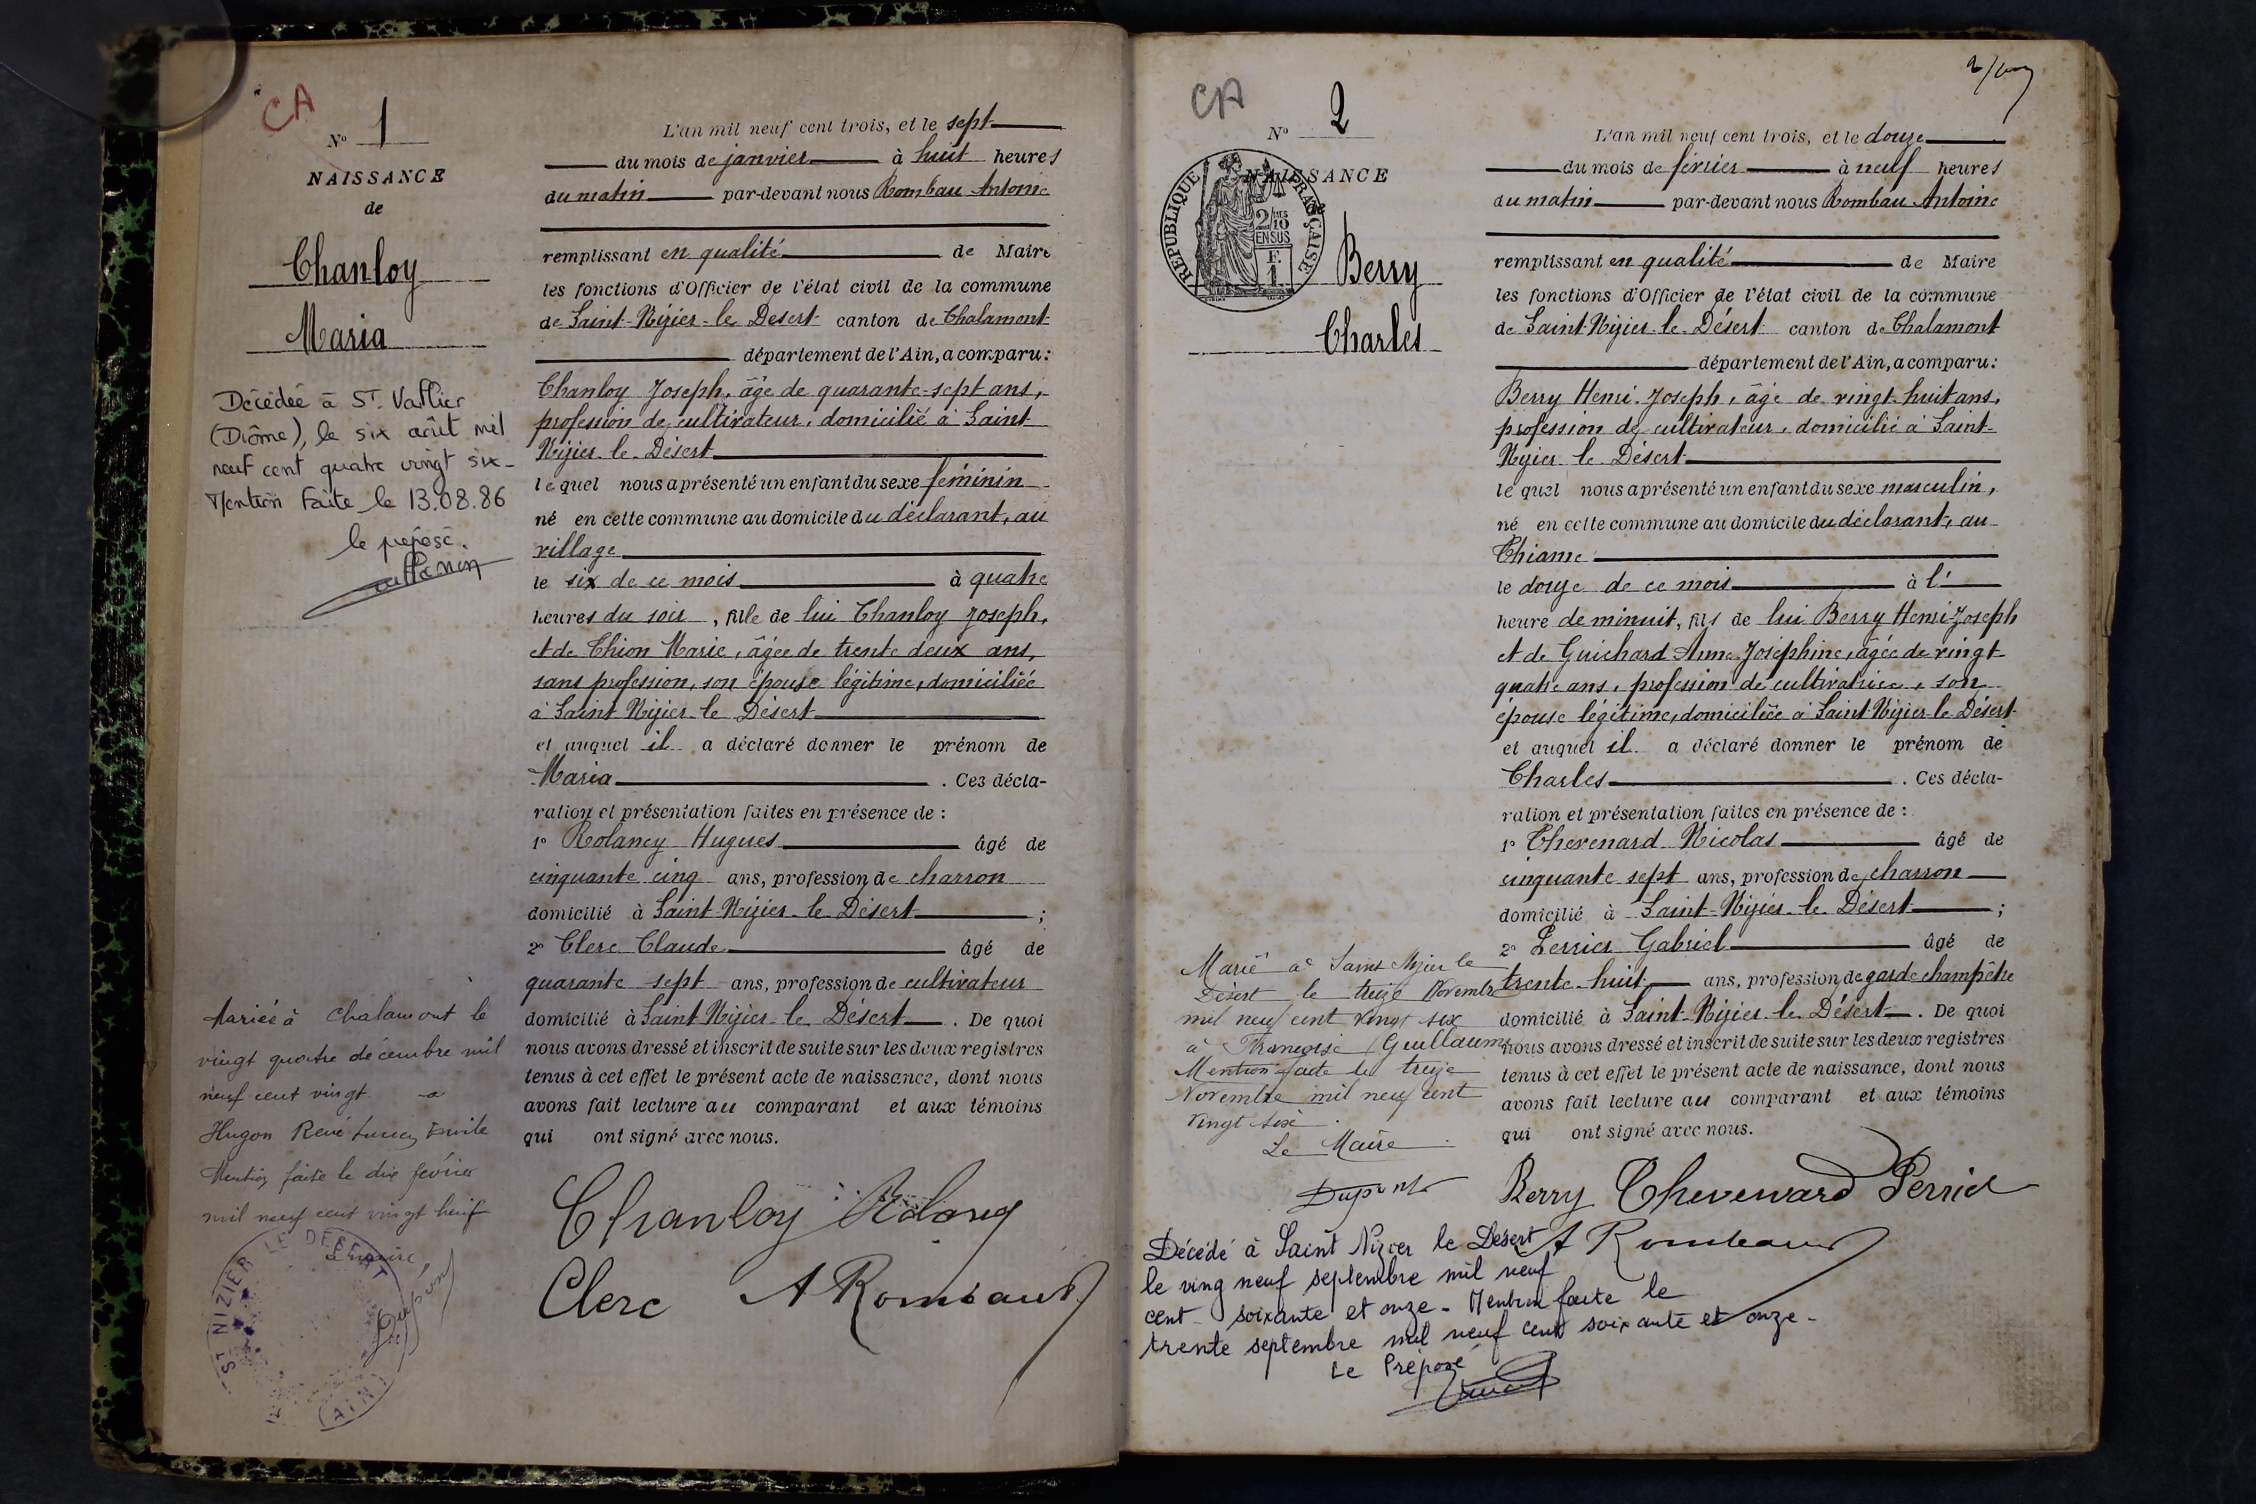 CA
N° 1
NAISSANCE
de
Chanloy
Maria
Décédée à St. Vallier
(Drôme), le six août mil
neuf cent quatre vingt six-
Mention faite le 13.08.86
le préposé.
Mariée à Chalamont le
vingt quatre décembre mil
neuf cent vingt a
Hugon René Lucien Emile
Mention faite le dix février
mil neuf cent vingt neuf
Le maire,
Dupont
ST NIZIER LE DESERT
(AIN)
L'an mil neuf cent trois, et le sept
du mois de janvier à huit heures
du matin par-devant nous Rombau Antoine
remplissant en qualité de Maire
les fonctions d'Officier de l'état civil de la commune
de Saint-Nizier-le Desert canton de Chalamont
département de l'Ain, a comparu:
Chanloy Joseph, âgé de quarante-sept ans,
profession de cultivateur, domicilié à Saint
Nizier-le-Désert
lequel nous a présenté un enfant du sexe féminin
né en cette commune au domicile du déclarant, au
village
le six de ce mois à quatre
heures du soir, fille de lui Chanloy Joseph,
et de Chion Marie, âgée de trente deux ans,
sans profession, son épouse légitime, domiciliée
à Saint Nizier-le Désert
et auquel il a déclaré donner le prénom de
Maria. Ces décla-
ration et présentation faites en présence de:
1° Rolancy Hugues âgé de
cinquante cinq ans, profession de charron
domicilié à Saint-Nizier-le Désert;
2° Clerc Claude âgé de
quarante sept ans, profession de cultivateur
domicilié à Saint Nizier-le Désert. De quoi
nous avons dressé et inscrit de suite sur les deux registres
tenus à cet effet le présent acte de naissance, dont nous
avons fait lecture au comparant et aux témoins
qui ont signé avec nous.
Chanloy Rolancy
Clerc A Rombaud
2/
CA
N° 2
NAISSANCE
REPUBLIQUE FRANÇAISE
2/10
EN SUS
F.
1
Berry
Charles
Marié à Saint Nizier le
Désert le treize Novembre
mil neuf cent vingt six
à Françoise Guillaume
Mention faite le treize
Novembre mil neuf cent
vingt six.
Le Maire
Dupont
L'an mil neuf cent trois, et le douze
du mois de février à neuf heures
du matin par-devant nous Rombau Antoine
remplissant en qualité de Maire
les fonctions d'Officier de l'état civil de la commune
de Saint-Nizier-le-Désert canton de Chalamont
département de l'Ain, a comparu:
Berry Henri-Joseph, âgé de vingt-huit ans,
profession de cultivateur, domicilié à Saint-
Nizier-le-Désert
lequel nous a présenté un enfant du sexe masculin,
né en cette commune au domicile du déclarant, au
Chiame
le douze de ce mois à l'
heure de minuit, fils de lui Berry Henri-Joseph
et de Guichard Anne-Joséphine, âgée de vingt
quatre ans, profession de cultivatrice, son
épouse légitime, domiciliée à Saint-Nizier-le-Désert
et auquel il a déclaré donner le prénom de
Charles. Ces décla-
ration et présentation faites en présence de:
1° Chevenard Nicolas âgé de
cinquante sept ans, profession de charron
domicilié à Saint-Nizier-le-Désert;
2° Perrier Gabriel âgé de
trente-huit ans, profession de garde champêtre
domicilié à Saint-Nizier-le-Désert. De quoi
nous avons dressé et inscrit de suite sur les deux registres
tenus à cet effet le présent acte de naissance, dont nous
avons fait lecture au comparant et aux témoins
qui ont signé avec nous.
Berry Chevenard Perrier
A Rombaud
Décédé à Saint Nizier le Désert
le ving neuf septembre mil neuf
cent soixante et onze - Mention faite le
trente septembre mil neuf cent soixante et onze -
Le Préposé